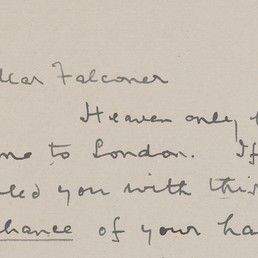 ear Falconer
Heaven only
me to London. If
led you with this
chance of your ha